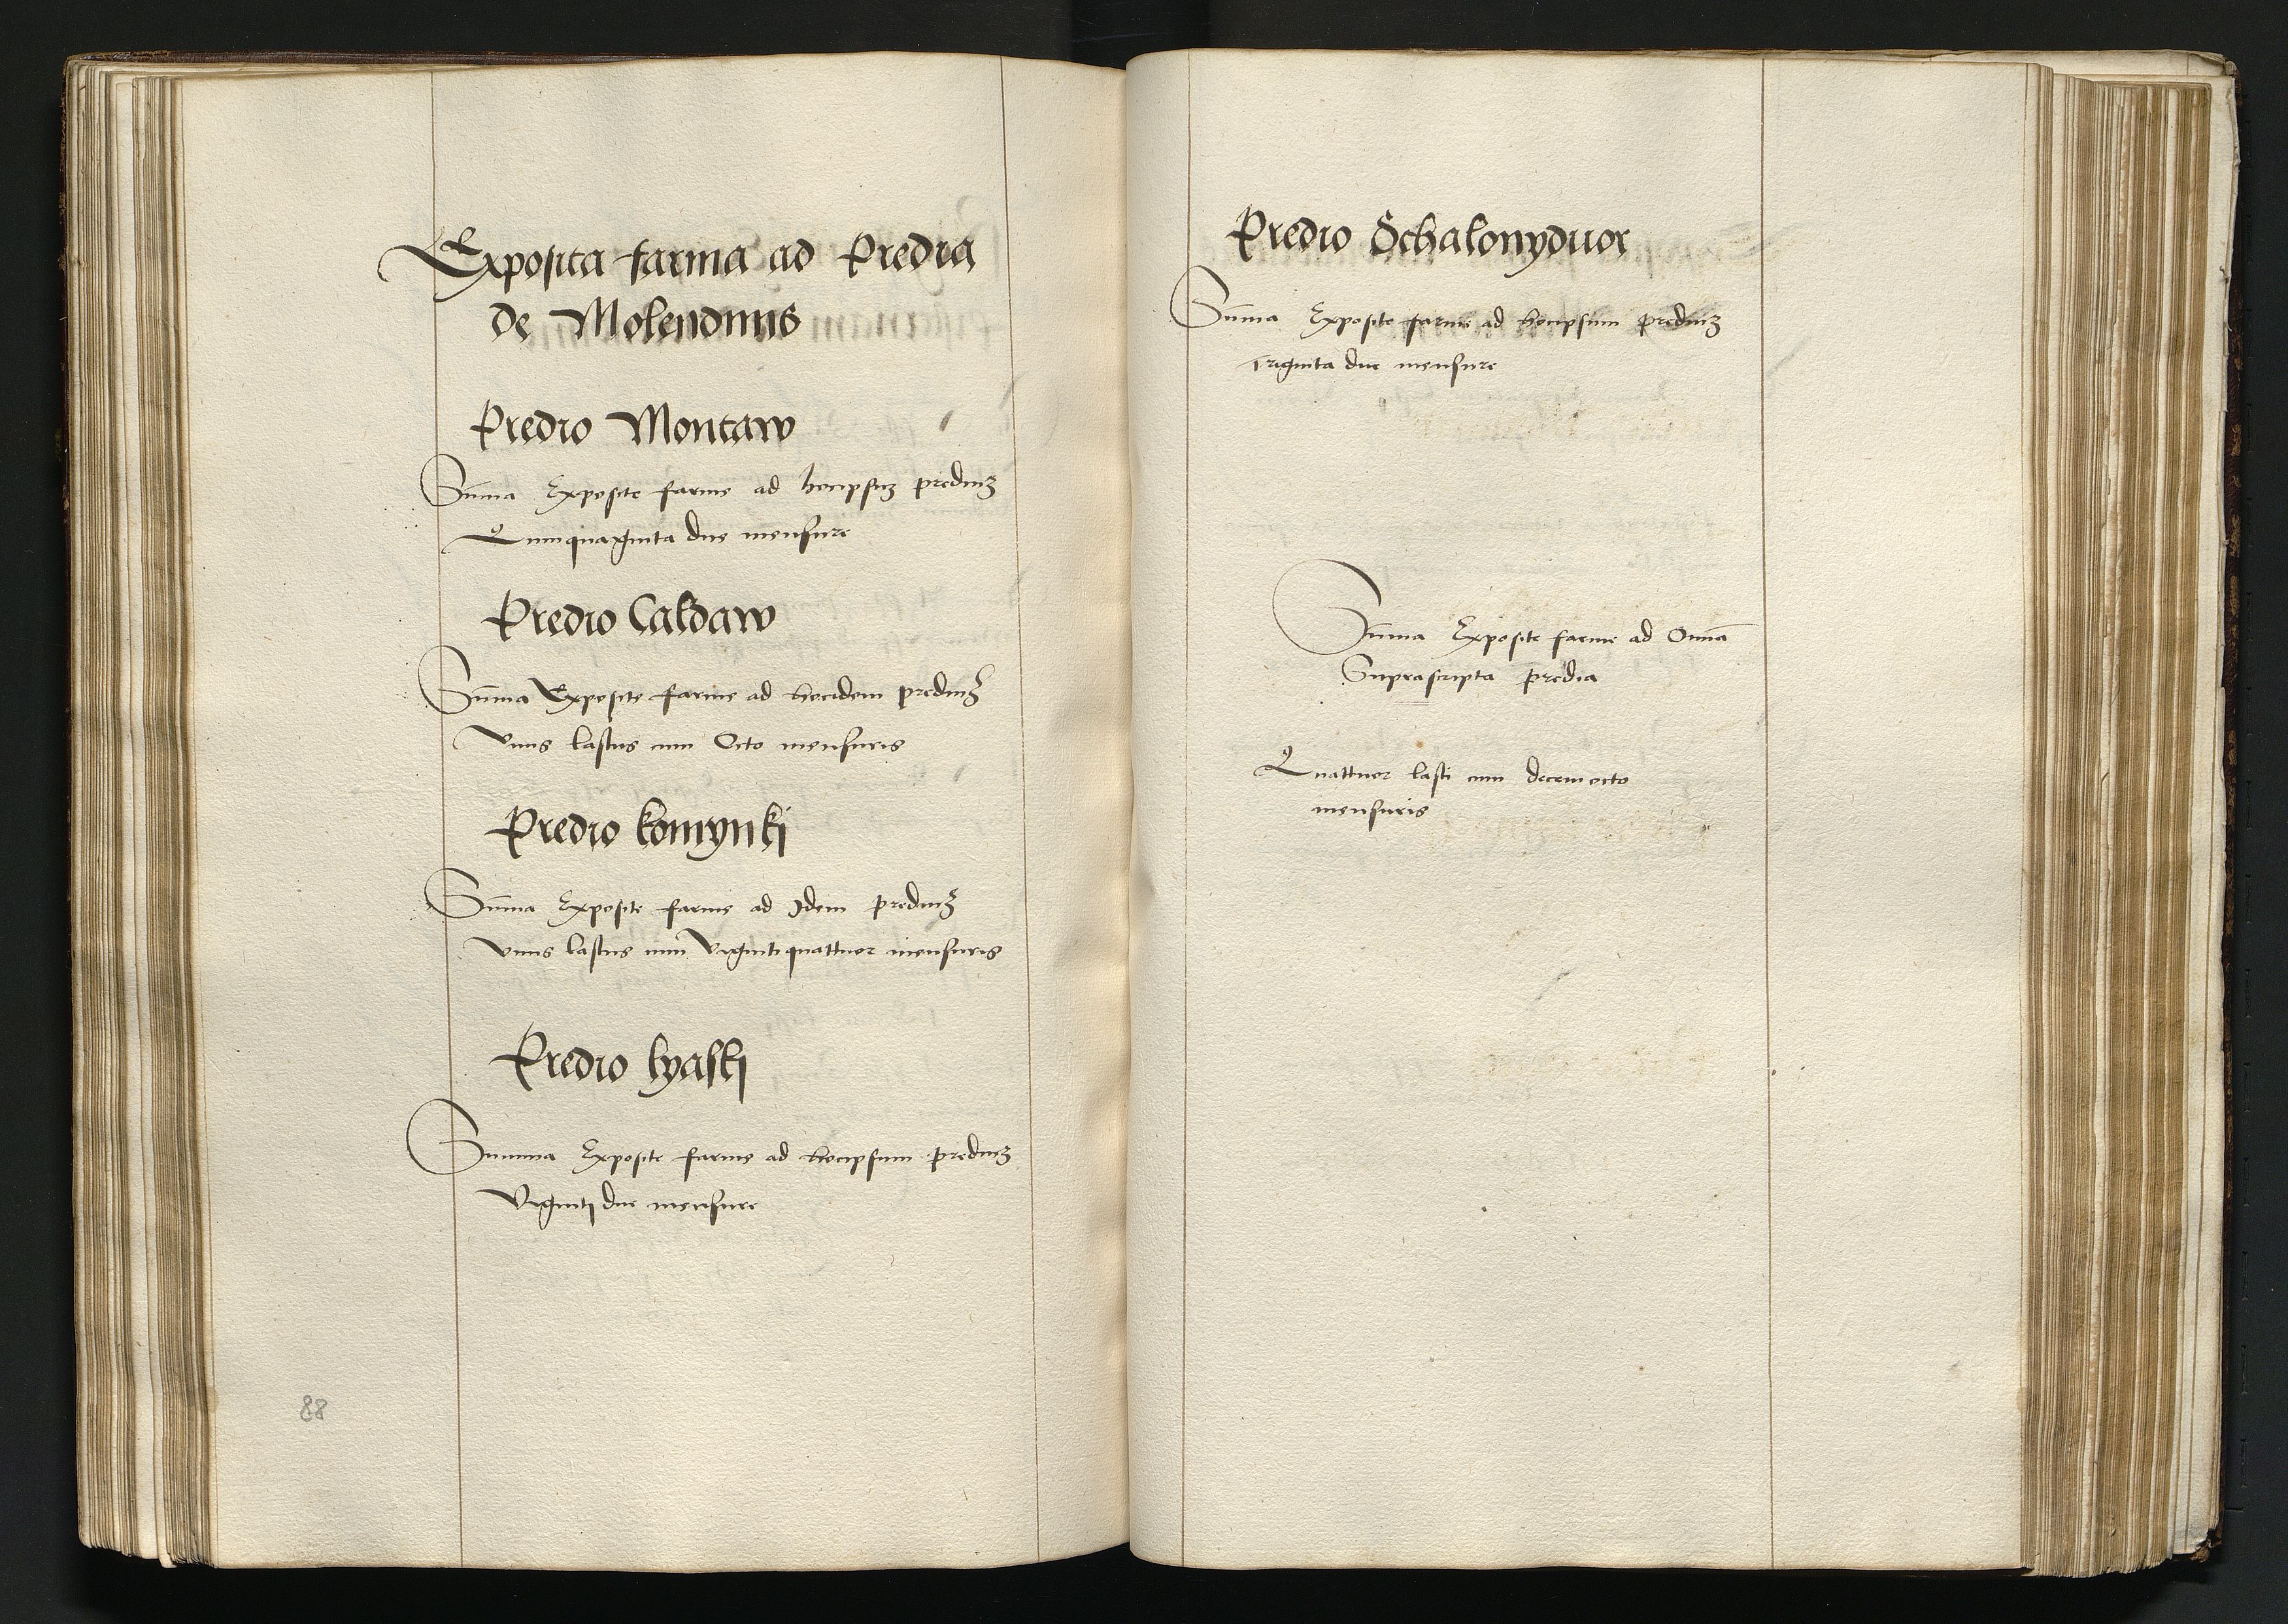 Exposita farina ad Predia
de Molendinis
Predio Montaw
Sum̄a Exposite farine ad hocipsuʒ prediuʒ
Quinquaginta due mensure
Predio Caldaw
Sum̄a Exposite farine ad hocidem prediuʒ
Unus lastus cum Octo mensuris
Predio komynki
Sum̄a Exposite farine ad Idem prediuʒ
Unus lastus cum Vigintiquattuor mensuris
Predio lyaski
Summa Exposite farine ad hocipsum prediuʒ
Viginti due mensure
88
Predio Schalonyduor
Sum̄a Exposite farine ad hocipsum prediuʒ
Triginta due mensure
Sum̄a Exposite farine ad Omnā
Suprascripta predia
Quattuor lasti cum decemocto
mensuris